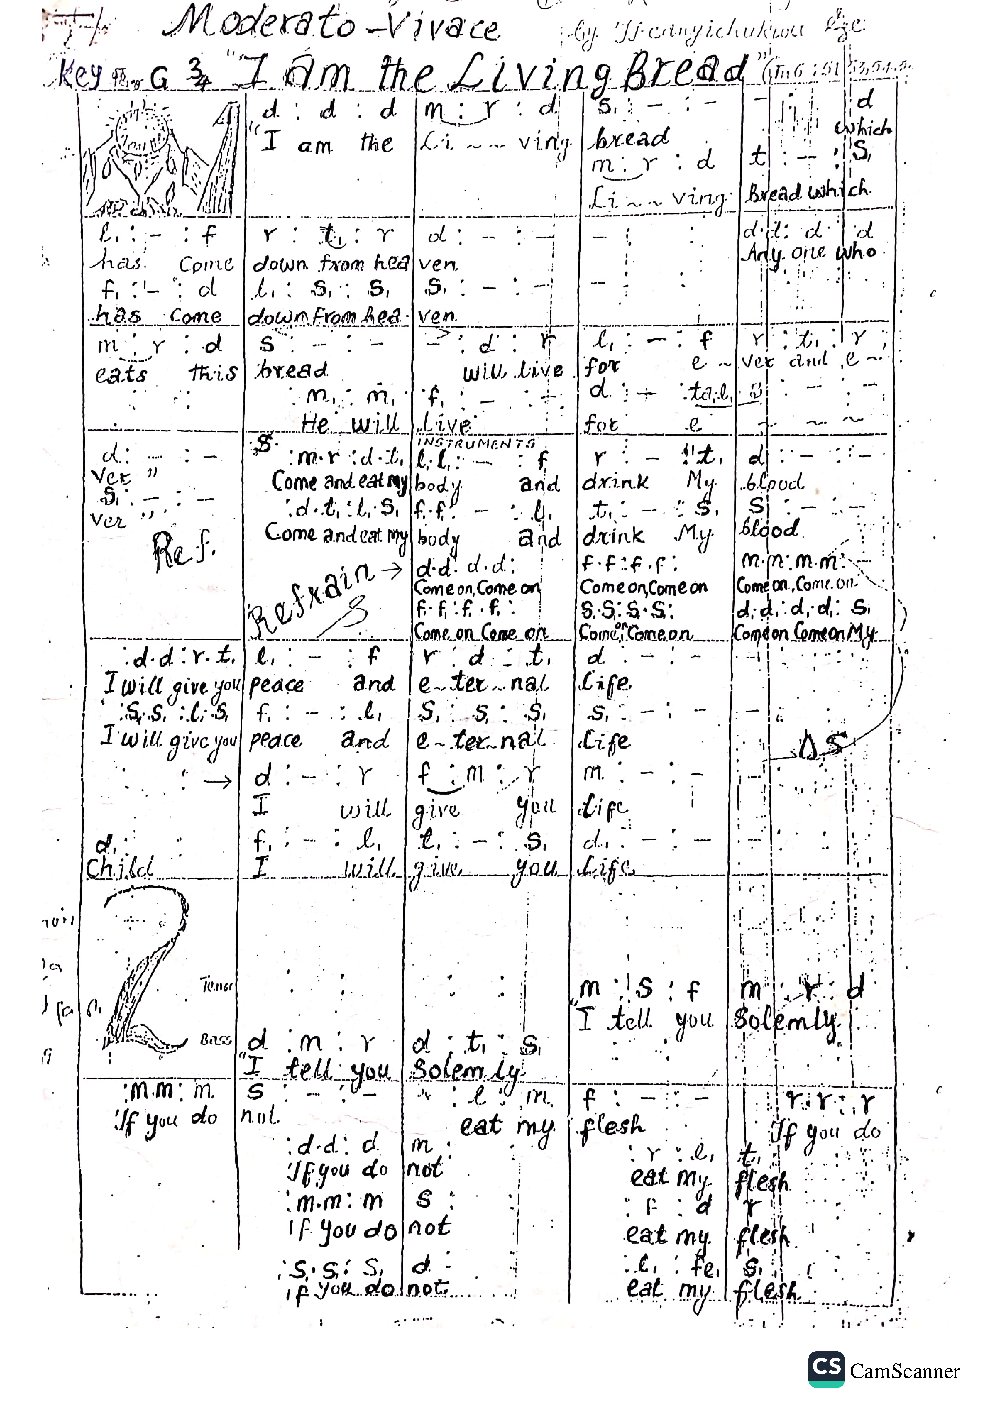 Moderato - Vivace by Ifeanyichukwu Eze
Key G 3/4 "I am the Living Bread"
d : d : d m : r : d s : - : - - : : d
"I am the Li ~ ~ ving bread which
m : r : d t : - : s,
Li ~ ~ ving Bread which
l, : - : f r : t, : r d : - : - - : : d.d : d : d
has Come down from hea ven Any one who
f, : - : d l, : s, : s, s, : - : - - : :
has Come down from hea - ven
m : r : d s : - : - - : d : r l, : - : f r : t, : r
eats this bread will live for e ~ ver and e ~
: : : m, : m, f, : - : - d : - : ta, l, s : - : -
He will Live for e ~ ~ ~
INSTRUMENTS
d : - : - S : m.r : d.t, l, l, : - : f r : - : t, d : - : -
ver " Come and eat my body and drink My blood
s, : - : - : d.t, : l, s, f, f, : - : l, t, : - : s, s, : - : -
ver " Come and eat my body and drink My blood
Ref. Refrain → d.d : d.d : f.f : f.f : m.m : m.m : -
S Come on, Come on Come on, Come on Come on, Come on
f.f : f.f : s.s : s.s : d.d : d.d : s,
Come on Come on Come on Come on Come on Come on My
: d.d : r.t, l, : - : f r : d : t, d : - : -
I will give you peace and e ~ ter ~ nal Life
: s, s, : l, s, f, : - : l, s, : s, : s, s, : - : -
I will give you peace and e ~ ter ~ nal Life
DS
: : → d : - : r f : m : r m : - : -
I will give you Life
d, : f, : - : l, t, : - : s, d, : - : -
Child I will give you Life
2
Tenor : : : : m : s : f m : r : d
"I tell you Solemly
Bass d : m : r d : t, : s,
"I tell you Solemly
: m.m : m s : - : - - : l : m f : - : - r.r : r
"If you do not eat my flesh If you do
: d.d : d m : : r : l, t,
If you do not eat my flesh
: m.m : m s : : f : d r
If you do not eat my flesh
: s.s : s, d : : l, : fe, s,
if you do not eat my flesh
CS CamScanner